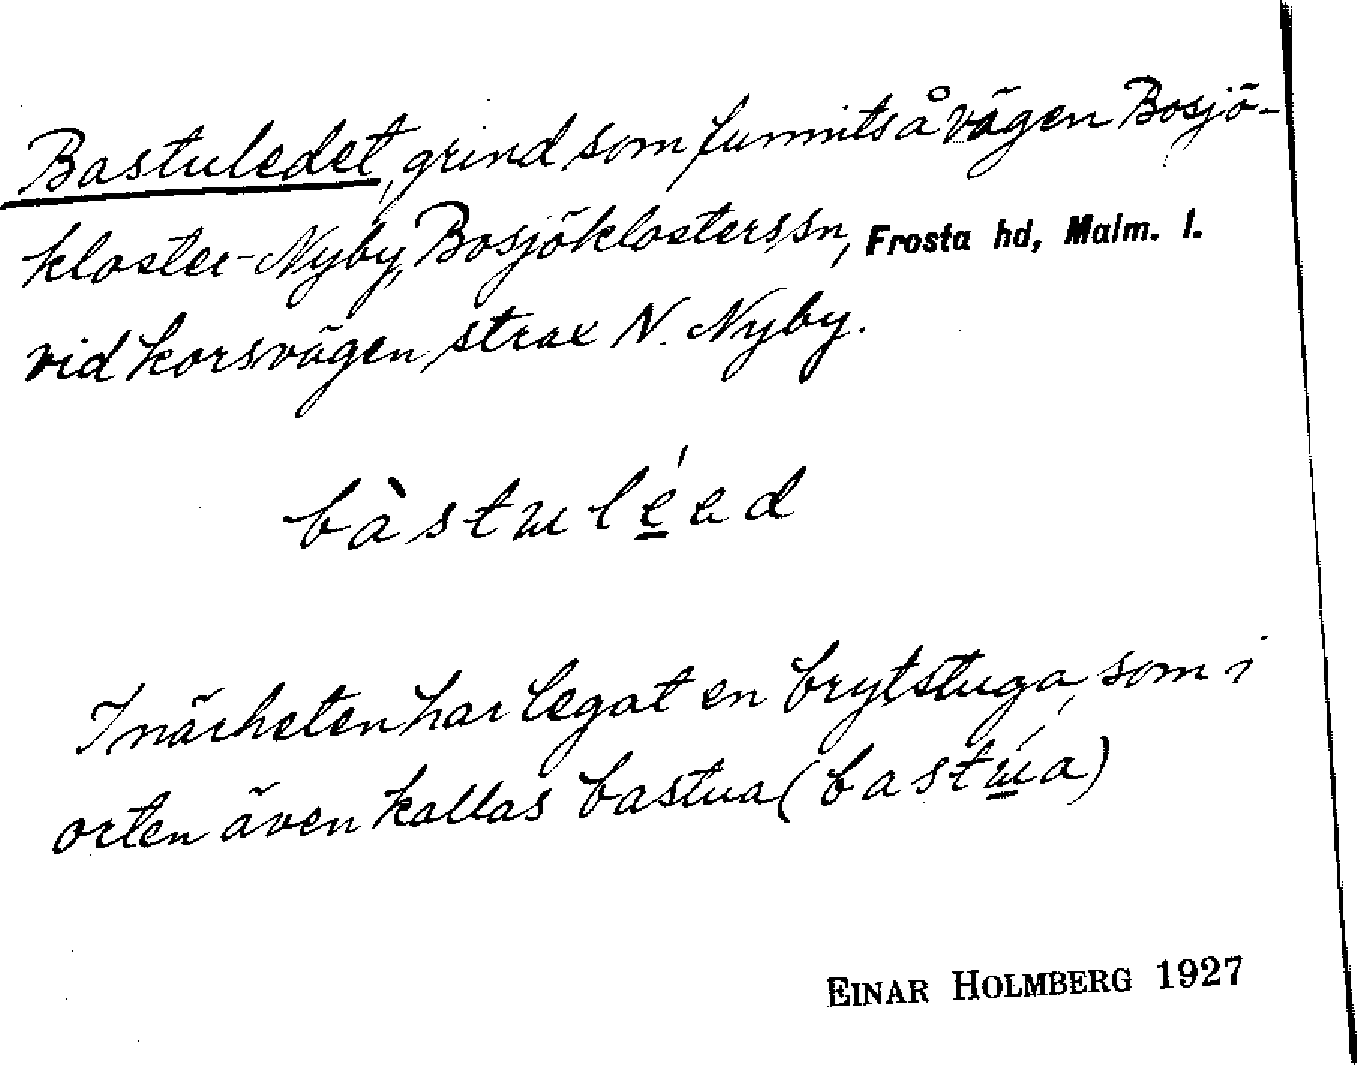 Bastuledet, grind som funnits å vägen Bosjö-
kloster-Nyby, Bosjöklosters sn, Frosta hd, Malm. l.
vid korsvägen strax N. Nyby.
bàstuléad
I närheten har legat en brytstuga, som i
orten även kallas bastua (bastúa)
EINAR HOLMBERG 1927